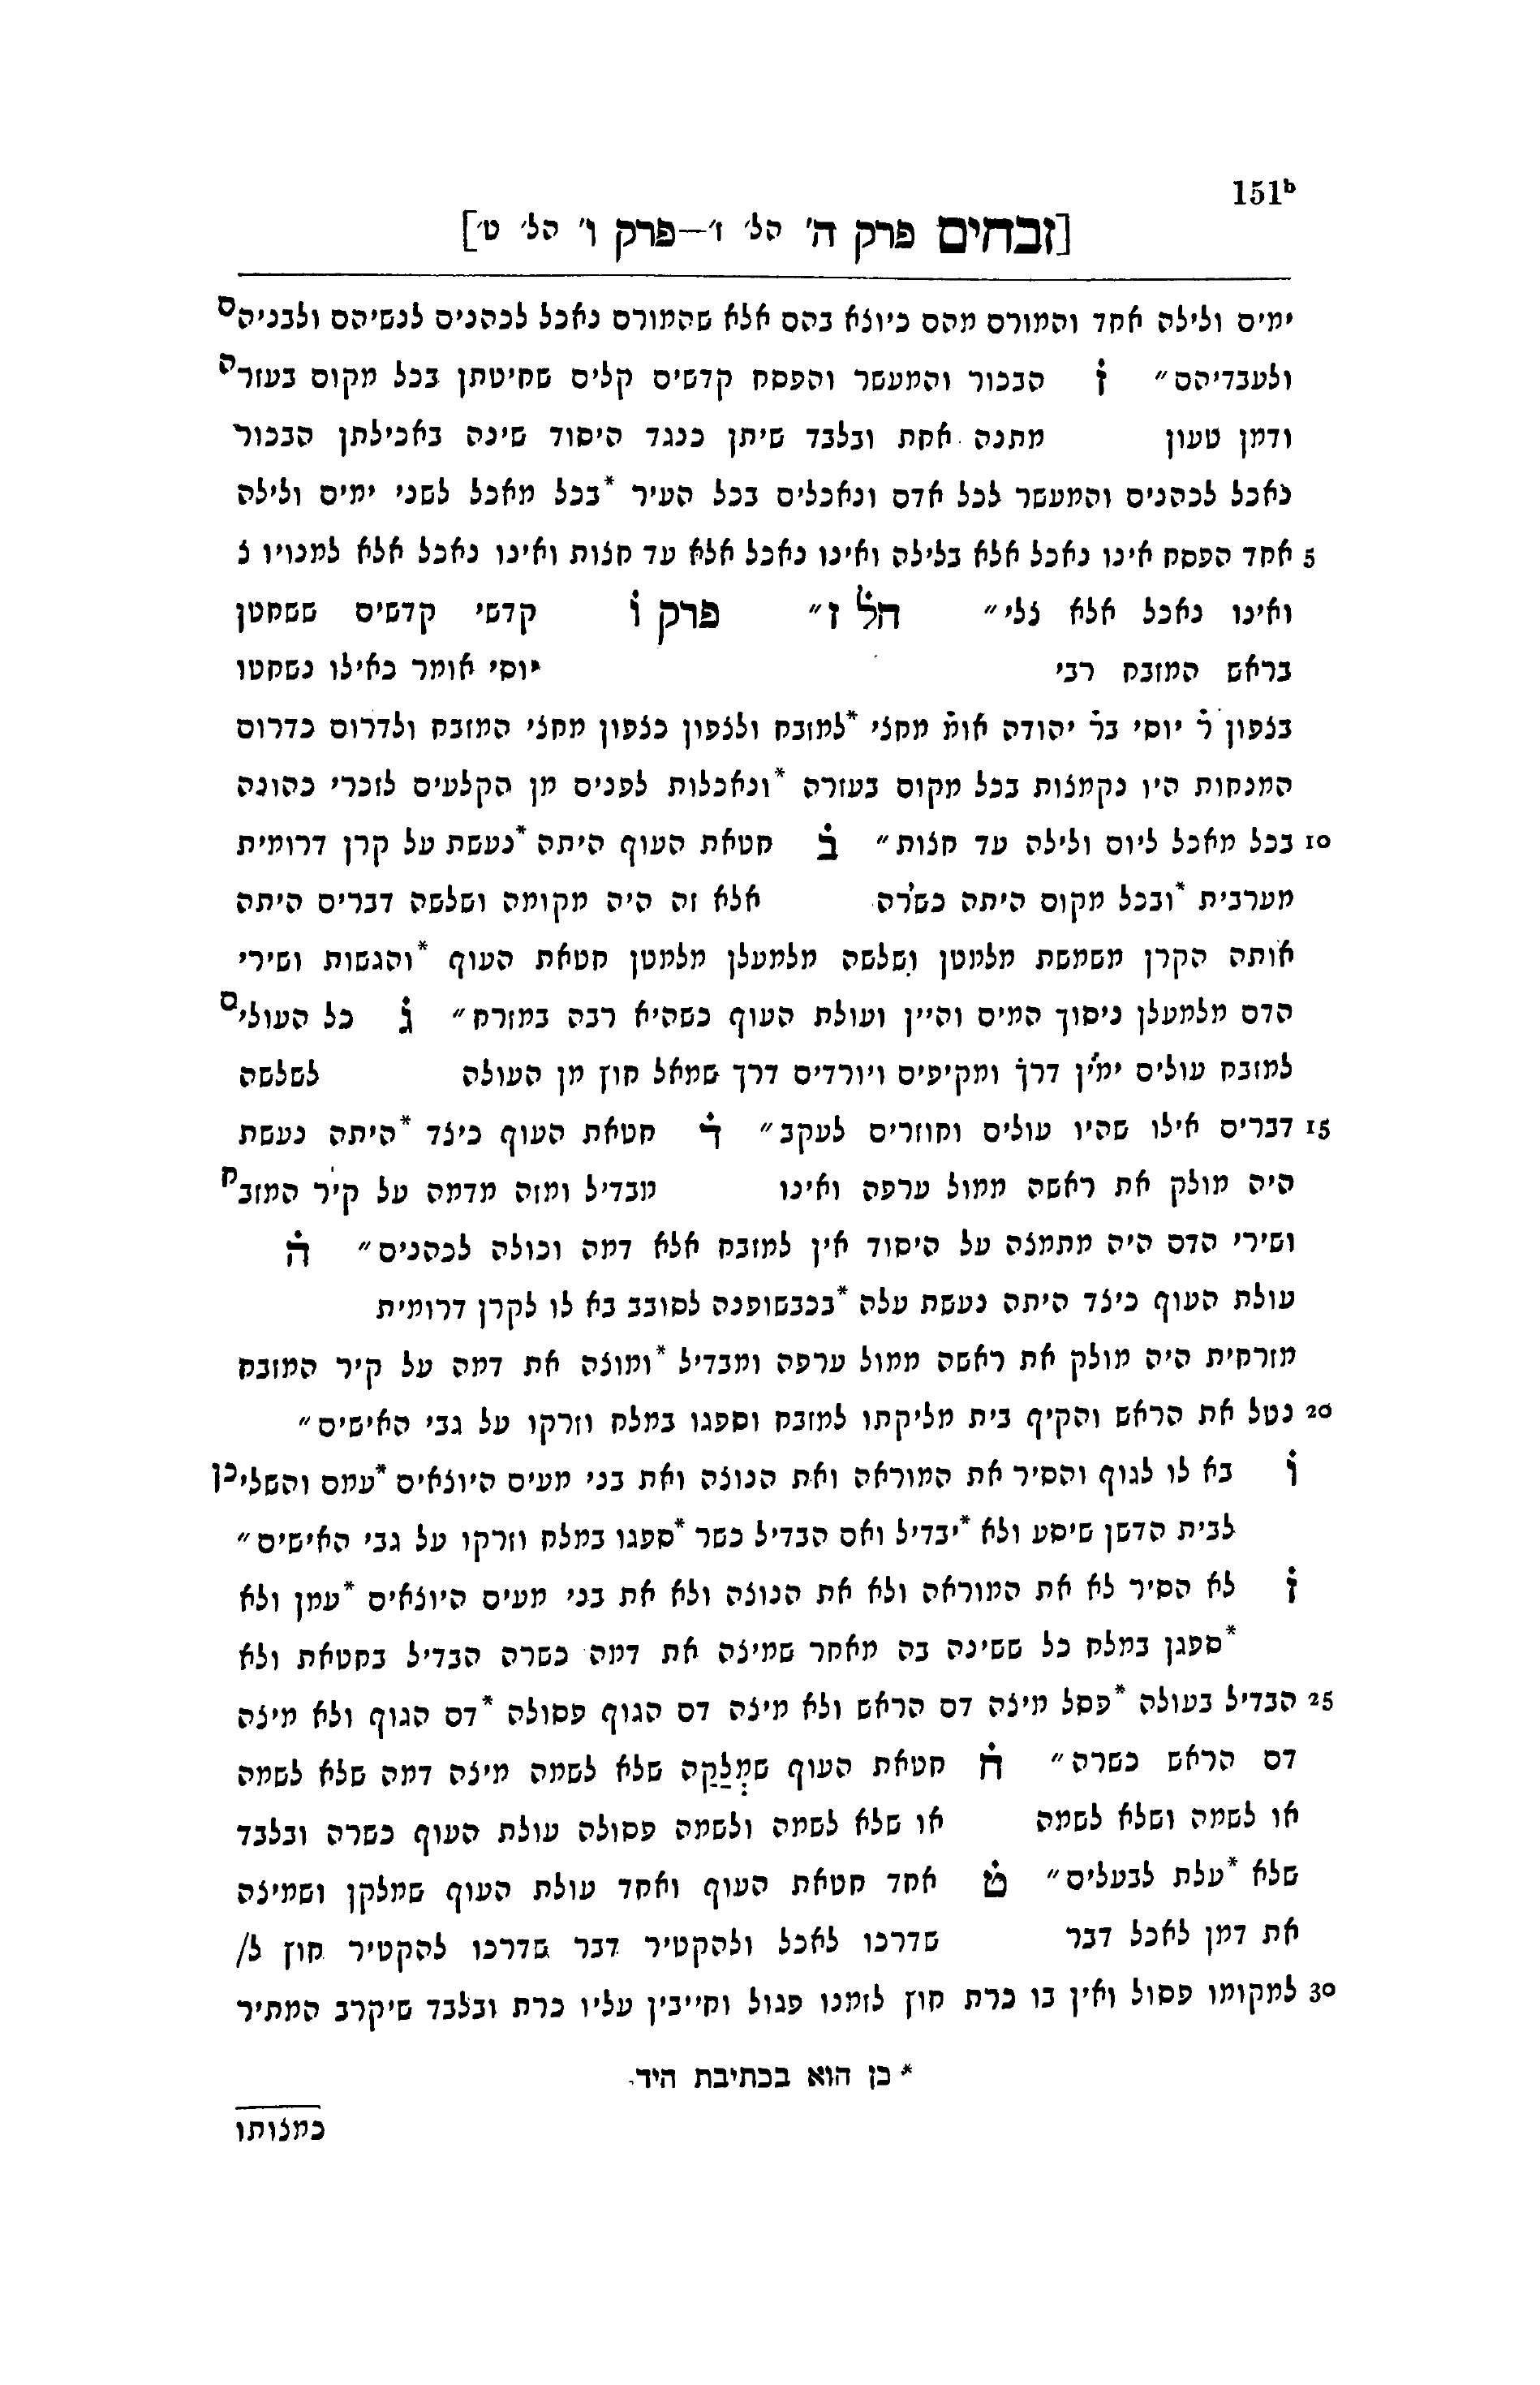 151ᵇ
[זבחים פרק ה' הל' ז'—פרק ו' הל' ט']
ימים ולילה אחד והמורם מהם כיוצא בהם אלא שהמורם נאכל לכהנים לנשיהם ולבניהם
ולעבדיהם״ ז הבכור והמעשר והפסח קדשים קלים שחיטתן בכל מקום בעזרה
ודמן טעון מתנה אחת ובלבד שיתן כנגד היסוד שינה באכילתן הבכור
נאכל לכהנים והמעשר לכל אדם ונאכלים בכל העיר *בכל מאכל לשני ימים ולילה
5 אחד הפסח אינו נאכל אלא בלילה ואינו נאכל אלא עד חצות ואינו נאכל אלא למנויו צ
ואינו נאכל אלא צלי״ הל ז״ פרק ו קדשי קדשים ששחטן
בראש המזבח רבי יוסי אומר כאילו נשחטו
בצפון ר יוסי בר יהודה אומ מחצי *למזבח ולצפון כצפון מחצי המזבח ולדרום כדרום
המנחות היו נקמצות בכל מקום בעזרה *ונאכלות לפנים מן הקלעים לזכרי כהונה
10 בכל מאכל ליום ולילה עד חצות״ ב חטאת העוף היתה *נעשת על קרן דרומית
מערבית *ובכל מקום היתה כשרה אלא זה היה מקומה ושלשה דברים היתה
אותה הקרן משמשת מלמטן ושלשה מלמעלן מלמטן חטאת העוף *והגשות ושירי
הדם מלמעלן ניסוך המים והיין ועולת העוף כשהיא רבה במזרח״ ג כל העולים
למזבח עולים ימין דרך ומקיפים ויורדים דרך שמאל חוץ מן העולה לשלשה
15 דברים אילו שהיו עולים וחוזרים לעקב״ ד חטאת העוף כיצד *היתה נעשת
היה מולק את ראשה ממול ערפה ואינו מבדיל ומזה מדמה על קיר המזבח
ושירי הדם היה מתמצה על היסוד אין למזבח אלא דמה וכולה לכהנים״ ה
עולת העוף כיצד היתה נעשת עלה *בכבשופנה לסובב בא לו לקרן דרומית
מזרחית היה מולק את ראשה ממול ערפה ומבדיל *ומוצה את דמה על קיר המזבח
20 נטל את הראש והקיף בית מליקתו למזבח וספגו במלח וזרקו על גבי האישים״
ו בא לו לגוף והסיר את המוראה ואת הנוצה ואת בני מעים היוצאים *עמם והשליכן
לבית הדשן שיסע ולא *יבדיל ואם הבדיל כשר *ספגו במלח וזרקו על גבי האישים״
ז לא הסיר לא את המוראה ולא את הנוצה ולא את בני מעים היוצאים *עמן ולא
*ספגן במלח כל ששינה בה מאחר שמיצה את דמה כשרה הבדיל בחטאת ולא
25 הבדיל בעולה *פסל מיצה דם הראש ולא מיצה דם הגוף פסולה *דם הגוף ולא מיצה
דם הראש כשרה״ ח חטאת העוף שמְלָקָהּ שלא לשמה מיצה דמה שלא לשמה
או לשמה ושלא לשמה או שלא לשמה ולשמה פסולה עולת העוף כשרה ובלבד
שלא *עלת לבעלים״ ט אחד חטאת העוף ואחד עולת העוף שמלקן ושמיצה
את דמן לאכל דבר שדרכו לאכל ולהקטיר דבר שדרכו להקטיר חוץ ל/
30 למקומו פסול ואין בו כרת חוץ לזמנו פגול וחייבין עליו כרת ובלבד שיקרב המתיר
* כן הוא בכתיבת היד.
כמצותו